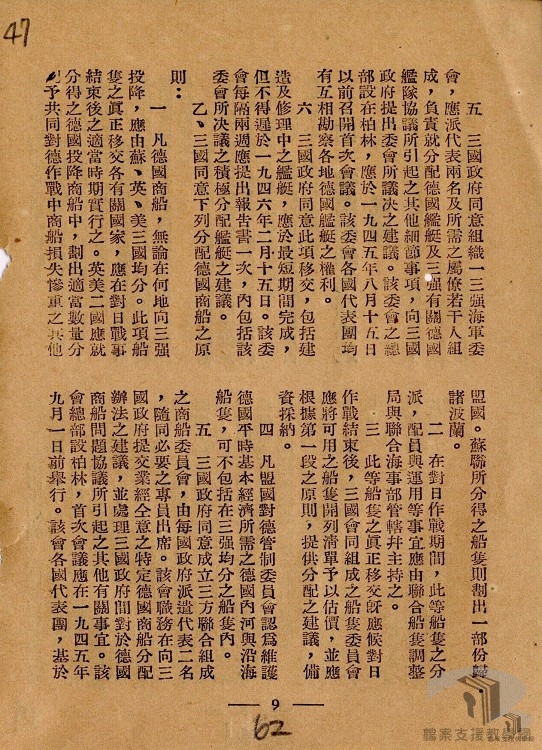 47
五　三國政府同意組織一三强海軍委
會，應派代表兩名及所需之屬僚若干人組
成，負責就分配德國艦艇及三强有關德國
艦隊協議所引起之其他細節事項，向三國
政府提出委會所議决之建議。該委會之總
部設在柏林，應於一九四五年八月十五日
以前召開首次會議。該委會各國代表團均
有互相勘察各地德國艦艇之權利。
六　三國政府同意此項移交，包括建
造及修理中之艦艇，應於最短期間完成，
但不得遲於一九四六年二月十五日。該委
會每隔兩週應提出報告書一次，內包括該
委會所决議之積極分配艦艇之建議。
乙、三國同意下列分配德國商船之原
則：
一　凡德國商船，無論在何地向三强
投降，應由蘇、英、美三國均分。此項船
隻之眞正移交各有關國家，應在對日戰事
結束後之適當時期實行之。英美二國應就
分得之德國投降商船中，劃出適當數量分
予共同對德作戰中商船損失慘重之其他
盟國。蘇聯所分得之船隻則劃出一部份歸
諸波蘭。
二　在對日作戰期間，此等船隻之分
派，配員與運用等事宜應由聯合船隻調整
局與聯合海事部管轄幷主持之。
三　此等船隻之眞正移交旣應候對日
作戰結束後，三國會同組成之船隻委員會
應將可用之船隻開列淸單予以估價，並應
根據第一段之原則，提供分配之建議，備
資採納。
四　凡盟國對德管制委員會認為維護
德國平時基本經濟所需之德國內河與沿海
船隻，可不包括在三强均分之船隻內。
五　三國政府同意成立三方聯合組成
之商船委員會，由每國政府派遣代表二名
，隨同必要之專員出席。該會職務在向三
國政府提交業經全意之特定德國商船分配
辦法之建議，並處理三國政府間對於德國
商船問題協議所引起之其他有關事宜。該
會總部設柏林，首次會議應在一九四五年
九月一日前舉行。該會各國代表團，基於
— 9 —
62
檔案支援教學網